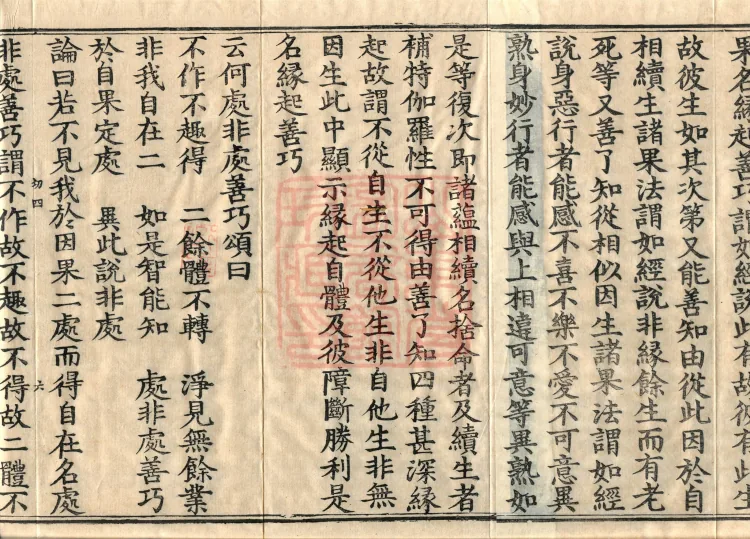 果名緣起善巧謂如經說此有故彼有此生
故彼生如其次第又能善知由從此因於自
相續生諸果法謂如經說非緣餘生而有老
死等又善了知從相似因生諸果法謂如經
說身惡行者能感不喜不樂不愛不可意異
熟身妙行者能感與上相違可意等異熟如
是等復次即諸蘊相續名捨命者及續生者
補特伽羅性不可得由善了知四種甚深緣
起故謂不從自生不從他生非自他生非無
因生此中顯示緣起自體及彼障斷勝利是
名緣起善巧
云何處非處善巧頌曰
不作不趣得 二餘體不轉 淨見無餘業
非我自在二 如是智能知 處非處善巧
於自果定處 異此說非處
論曰若不見我於因果二處而得自在名處
切四 六
非處善巧謂不作故不趣故不得故二體不